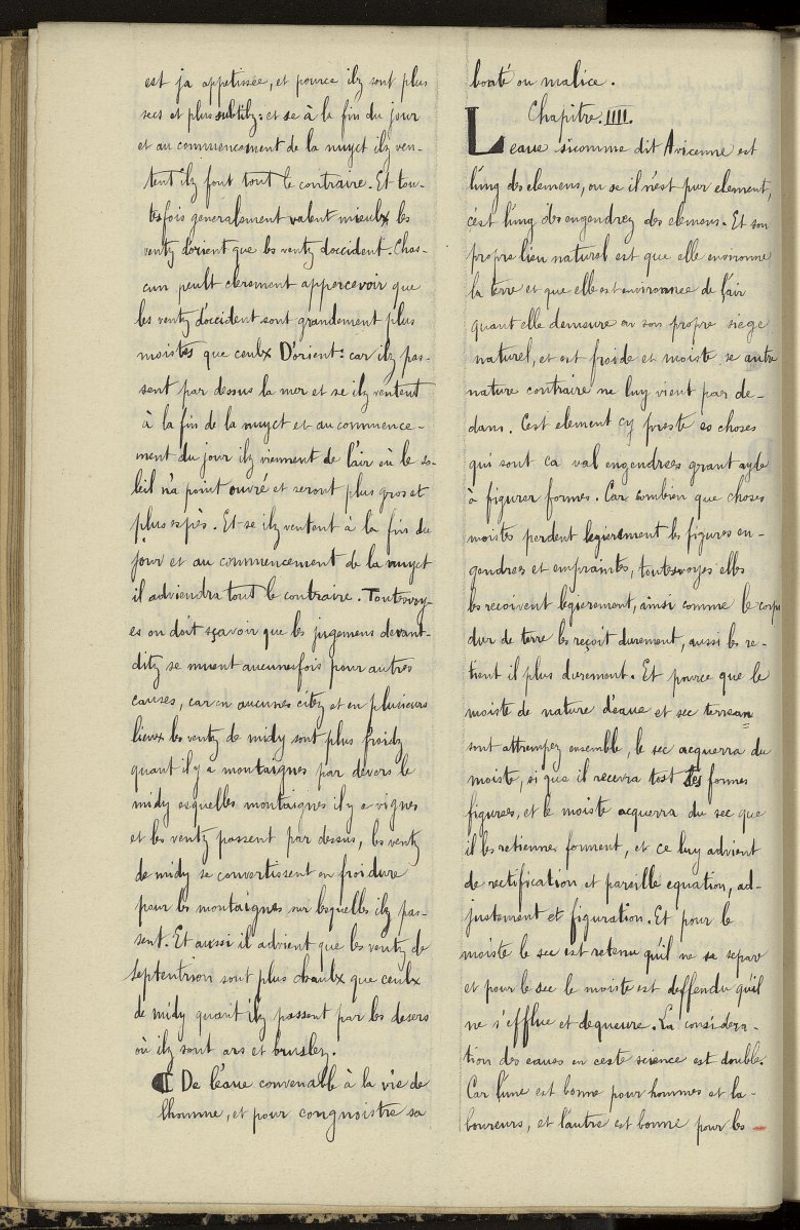 est ja appetissée, et pource ilz sont plus
secs et plus subtilz: et se à la fin du jour
et au commencement de la nuyct ilz ven-
tent ilz font tout le contraire. Et tou-
tesfois generalement valent mieulx les
ventz d'orient que les ventz doccident. Chas-
cun peult clerement appercevoir que
les ventz d'occident sont grandement plus
moistes que ceulx D'orient: car ilz pas-
sent par dessus la mer et se ilz ventent
à la fin de la nuyct et au commence-
ment du jour ilz viennent de l'air où le so-
leil n'a point ouvré et seront plus gros et
plus espès. Et se ilz ventent à la fin du
jour et au commencement de la nuyct
il adviendra tout le contraire. Toutesvoy-
es on doit sçavoir que les jugemens devant-
ditz se muent aucunesfois pour autres
causes, car en aucunes citez et en plusieurs
lieux les ventz de midy sont plus froidz
quant il y a montaignes par devers le
midy esquelles montaignes il y a vignes
et les ventz passent par dessus, les ventz
de midy se convertissent en froidure
pour les montaignes sur lesquelles ilz pas-
sent. Et aussi il advient que les ventz de
septentrion sont plus chaulx que ceulx
de midy quant ilz passent par les desers
où ilz sont ars et bruslez.
¶ De l'eaue convenable à la vie de
lhomme, et pour congnoistre sa
bonté ou malice.
Chapitre. IIII.
Leaue sicomme dit Avicenne est
l'ung des elemens, ou se il n'est pur element,
c'est l'ung des engendrez des elemens. Et son
propre lieu naturel est que elle environne
la terre et que elle est environnee de l'air
quant elle demeure en son propre siege
naturel, et est froide et moiste se autre
nature contraire ne luy vient par de-
dans. Cest element cy preste es choses
qui sont ca val engendrees grant ayde
à figurer formes. Car combien que choses
moistes perdent legierement les figures en-
gendrees et empraintes, toutesvoyes elles
les recoivent legierement, ainsi comme le corps
dur de terre les reçoit durement, aussi les re-
tient il plus durement. Et pource que le
moiste de nature d'eaue et sec terrean
sont attrempez ensemble, le sec acquerra du
moiste, si que il recevra tost les formes
figurees, et le moiste acquerra du sec que
il les retienne forment, et ce luy advient
de rectification et pareille equation, ad-
justement et figuration. Et pour le
moiste le sec est retenu qu'il ne se separe
et pour le sec le moiste est deffendu qu'il
ne s'efflue et dequeure. La considera-
tion des eaues en ceste science est double.
Car l'une est bonne pour hommes et la-
boureurs, et l'autre est bonne pour les